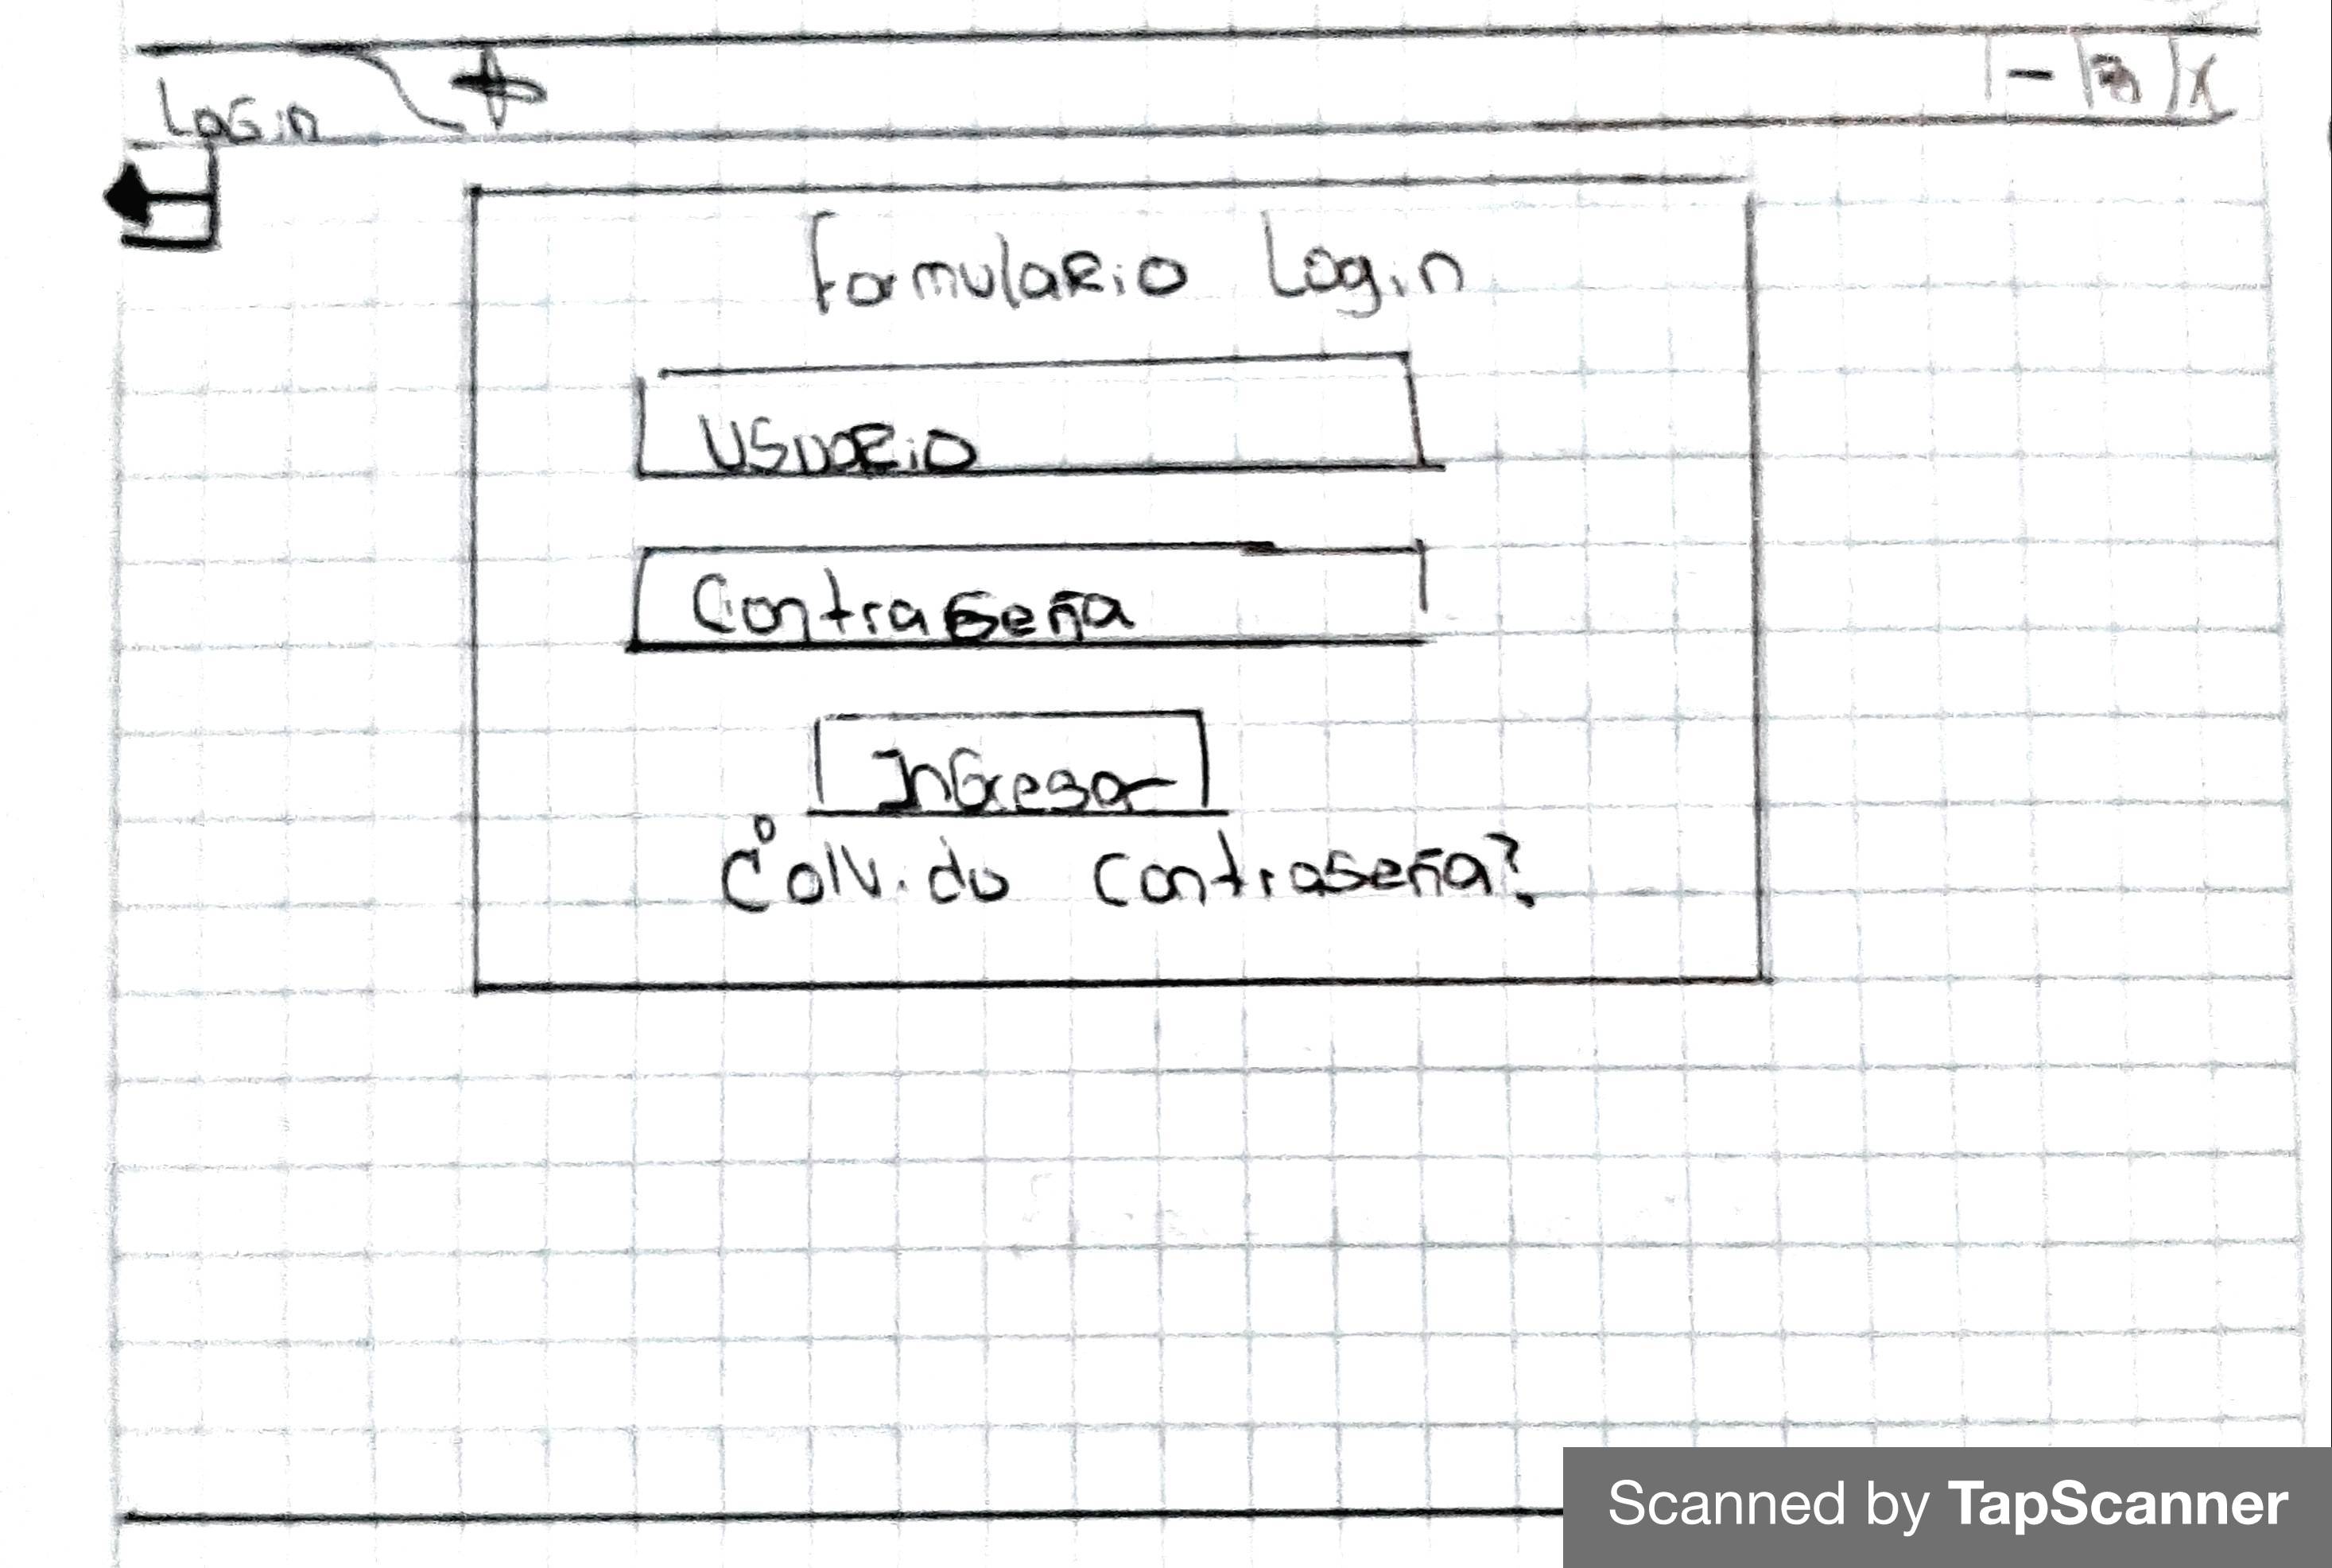 Login
Formulario Login
Usuario
Contraseña
Ingresar
¿olvido contraseña?
Scanned by TapScanner